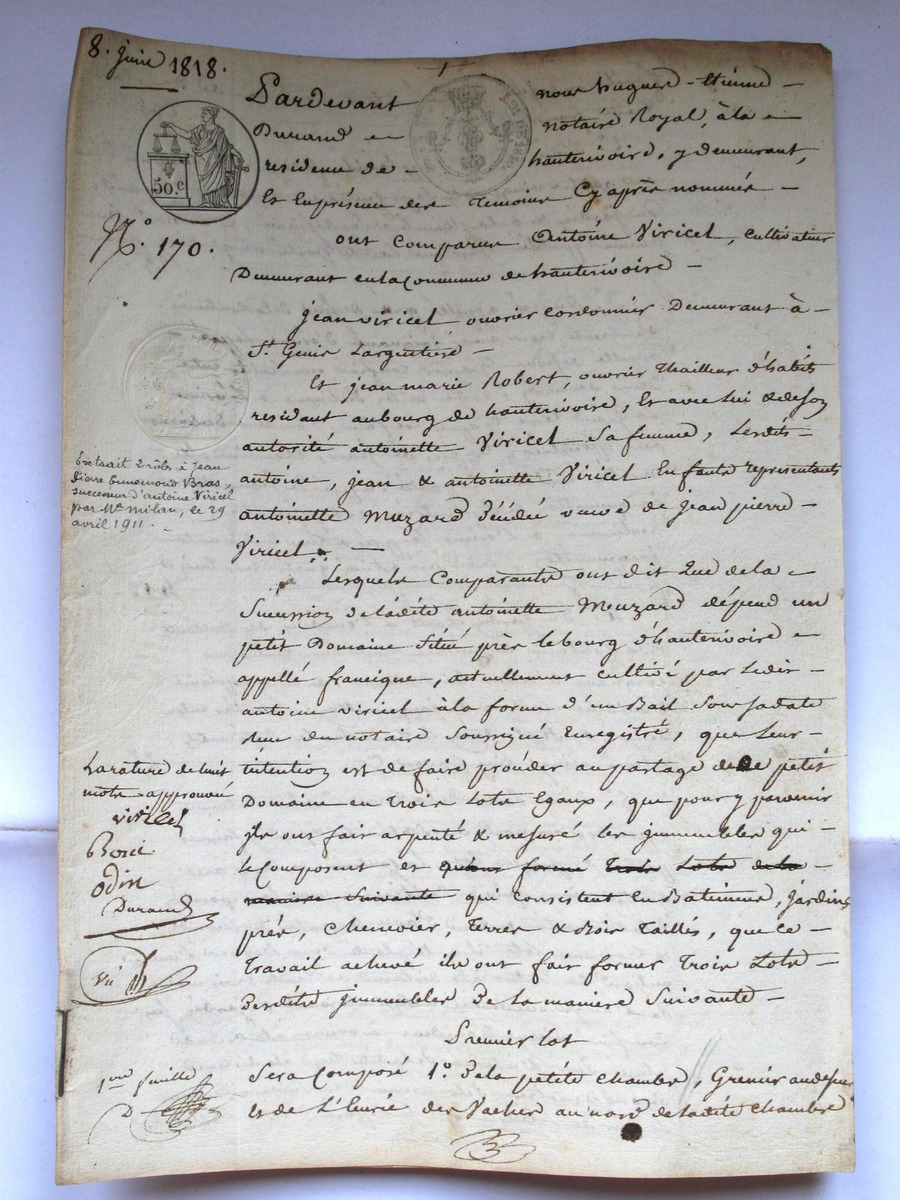 8. juin 1818.
Pardevant nous hugues-étienne
Durand notaire Royal, à la
residence de hauterivoire, y demeurant,
Et En présence des Temoins Cy après nommés
50.c
N.o 170.
ont comparus Antoine Viricel, cultivateur
Demeurant en la Commune de hauterivoire
jean viricel ouvrier Cordonnier Demeurant à
St. Genis Largentière
Et jean marie Robert, ouvrier Thailleur d'habits
residant au bourg de hauterivoire, Et avec lui & de son
autorité antoinette Viricel Sa femme, Lesdits
antoine, jean & antoinette Viricel Enfants representants
antoinette Muzard Décédée veuve de jean pierre
Viricel.
Extrait 2 rôles à Jean
Pierre Ennemond Bras,
successeur d'Antoine Viricel
par Me Milan, le 29
avril 1911.
Lesquels Comparants ont dit Que de la
Succession de ladite antoinette Mouzard dépend un
petit Domaine Situé près le bourg d'hauterivoire
appellé francique, actuellement cultivé par Ledit
antoine viricel à la forme d'un Bail Sous Sa date
Reçu du notaire Soussigné Enregistré, que Leur
intention est de faire procéder au partage de ce petit
Domaine en Trois Lots Egaux, que pour y parvenir
ils ont fait arpenté & mesuré les immeubles qui
le Composent et qu'ont formé Trois Lots de la
maniere Suivante qui Consistent En Batiments, jardins
prés, Chenevier, Terres & Bois Taillis, que Ce
Travail achevé ils ont fait former Trois Lots
Desdits jmmeubles De la maniere Suivante
La rature de huit
mots approuvée
viricel
Odin
Durand
Premier Lot
Sera Composé 1.o De la petite Chambre, Grenier au dessus
et de L'Ecurie des Vaches au nord de ladite Chambre
1ere feuille
D